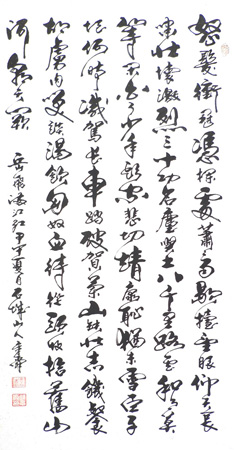 怒髮衝冠憑欄處蕭蕭雨歇擡望眼仰天長
嘯壯懷激烈三十功名塵與土八千里路雲和月莫
等閒白了少年頭空悲切靖康恥猶未雪臣子
恨何時滅駕長車踏破賀蘭山缺壯志饑餐
胡虜肉笑談渴飲匈奴血待從頭收拾舊山
河朝天闕
岳飛滿江紅甲午夏月石城山人